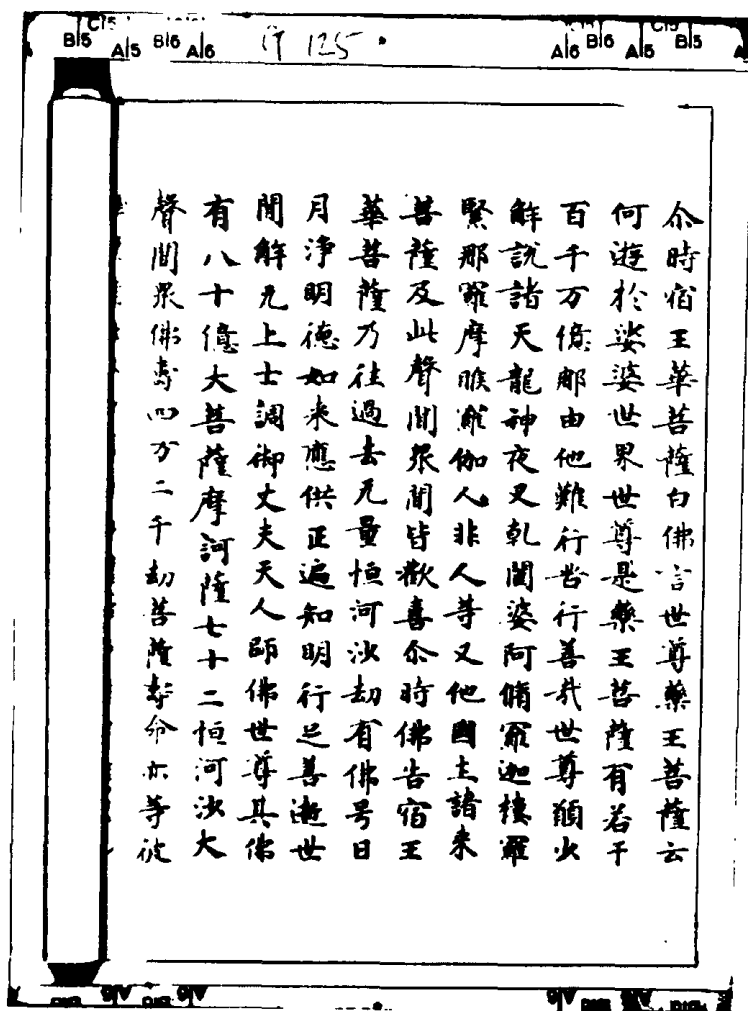 尒時宿王華菩薩白佛言世尊藥王菩薩云
何遊於娑婆世界世尊是藥王菩薩有若干
百千万億那由他難行苦行善㢤世尊願少
解說諸天龍神夜叉乹闥婆阿脩羅迦樓羅
緊那羅摩睺羅伽人非人等又他國土諸来
菩薩及此聲聞衆聞皆歡喜尒時佛告宿王
華菩薩乃往過去无量恒河沙劫有佛号日
月淨明德如来應供正遍知明行足善逝世
間解无上士調御丈夫天人師佛世尊其佛
有八十億大菩薩摩訶薩七十二恒河沙大
聲聞衆佛壽四万二千劫菩薩壽命亦等彼
B5
A5
B6
A6
125
A6
B6
A5
B5